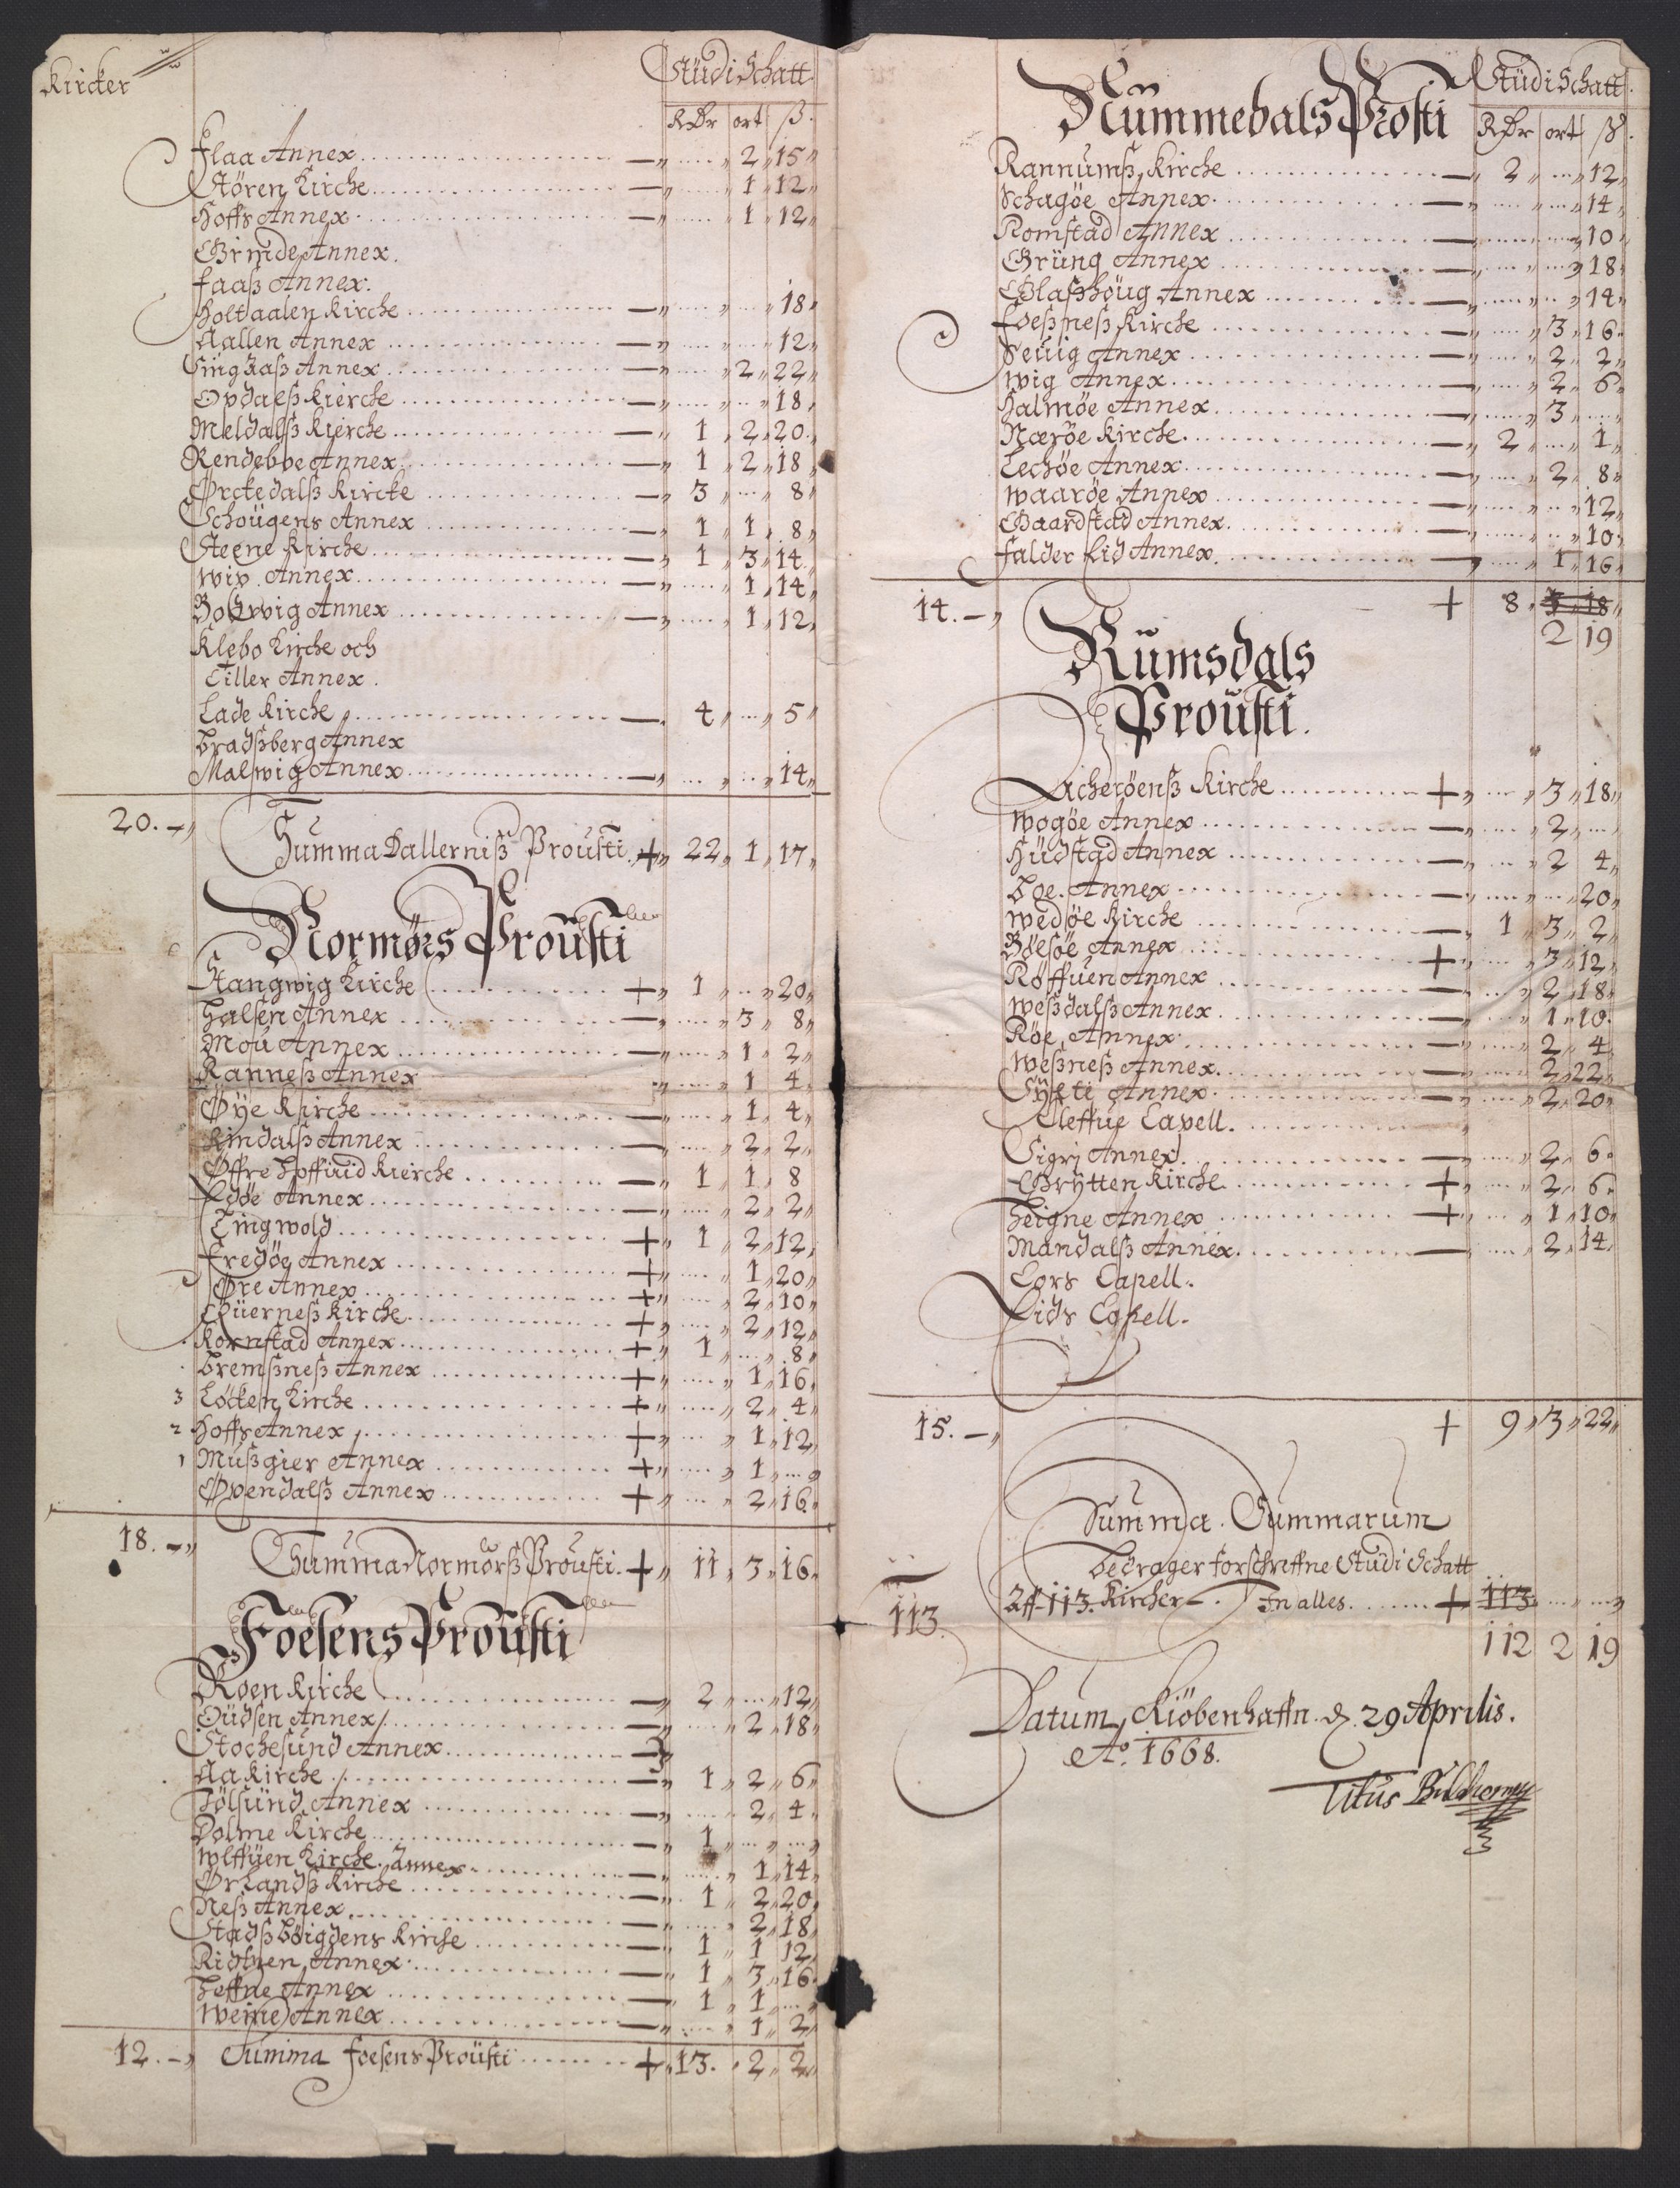 Kircker
StüdiSchatt.
RDr ort ß.
Flaa Annex 2 15
Stören Kirche 1 12
Hoffs Annex 1 12
Annex.
faaß Annex.
Holtaalen Kirche 18
Aallen Annex 12
Annex 2 22
Opdalß Kierche 18
Meldalß Kierche 1 2 20
Rendeboe Annex 1 2 18
Ørckedalß Kircke 3 8
Schougens Annex 1 1 8
Steene Kirche 1 3 14
Wix Annex 1 14
Annex 1 12
Klebo Kirche och
Tiller Annex.
Lade Kirche 4 5
Bradßberg Annex
Malwig Annex 14
20.
Summa Dallerniß Prousti 22 1 17
Normørs Proüsti
Stangwig Kirche 1 20
Halsen Annex 3 8
Moü Annex 1 2
Ranneß Annex 1 4
Øye Kirche 1 4
Rindalß Annex 2 2
Øffre Kierche 1 1 8
Edöe Annex 2 2
Tingwold 1 2 12
Fredöe Annex 1 20
Øre Annex 2 10
Qüerneß Kirche 2 12
Kornstad Annex 1 8
Bremßneß Annex 1 16
3 Löcken Kirche 2 4
2 Hoffs Annex 1 12
1 Mußgier Annex 1
Øxendalß Annex 2 16
18.
Summa Normörß Proüsti. 11 3 16
Foesens Proüsti
Roen Kirche 2 12
Oüdsen Annex 2 18
Stochesund Annex
Aa Kirche 1 2 6
Jölsünd Annex 2 4
Dolme Kirche 1
Wlffüen Kirche Annex 1 14
Ørlandß Kirche 1 2 20
Neß Annex 2 18
Stadßböigdens Kirche 1 1 12
Annex 1 3 16
Heffne Annex 1 1
Annex 1 2
12.
Summa Foesens Proüsti 13 2 2
Nümmedals Prosti
StüdiSchatt.
RDr ort ß.
Rannumß Kirche 2 12
Schagöe Annex 14
Romstad Annex 10
Grüng Annex 18
Glaßhöug Annex 14
Foeßneß Kirche 3 16
Seuig Annex 2 2
Wig Annex 2 6
Halmöe Annex 3
Næröe Kirche 2 1
Lechöe Annex 2 8
Waaröe Annex 12
Gaardstad Annex 10
Falder Lid Annex 1 16
14. 8 18
2 19
Rümsdals
Proüsti.
Acheröenß Kirche 3 18
Wogöe Annex 2
Hüdstad Annex 2 4
Boe Annex 20
Wedöe Kirche 1 3 2
Böesöe Annex 3 12
Röffuen Annex 2 18
Weßdalß Annex 1 10
Röe Annex 2 4
Weßneß Annex 2 22
Sylte Annex 2 20
Cleffue Capell.
Annex 2 6
Grytten Kirche 2 6
Heigne Annex 1 10
Mandalß Annex 2 14
Cors Capell.
Lids Capell.
15. 9 3 22
Summa Summarum
bedrager forschreffne Studi Schatt
Aff 113. Kircher. In alles. 113
113.
112 2 19
Datum Kiöbenhaffn d. 29 Aprilis.
Ao. 1668.
Titus